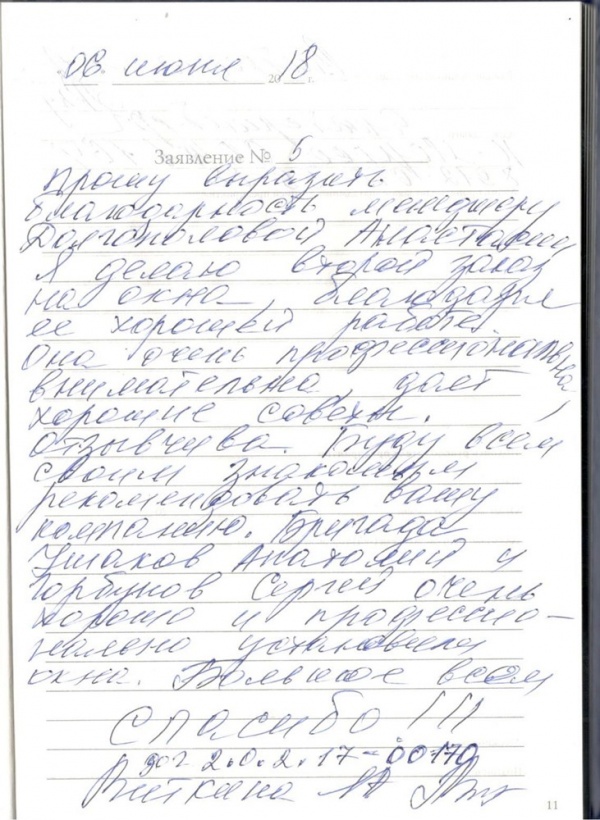 06 июня 2018 г.
Заявление № 5
Прошу выразить
благодарность менеджеру
Долгополовой Анастасии
Я делаю второй заказ
на окна, благодаря
ее хорошей работе.
Она очень профессиональна,
внимательна, дает
хорошие советы.
Отзывчива. Буду всем
своим знакомым
рекомендовать вашу
компанию. Бригада
Ушаков Анатолий и
Горбунов Сергей очень
хорошо и профессио-
нально установили
окна. Большое всем
спасибо!!!
дог 2.0.2.17-00170
Виткина
11